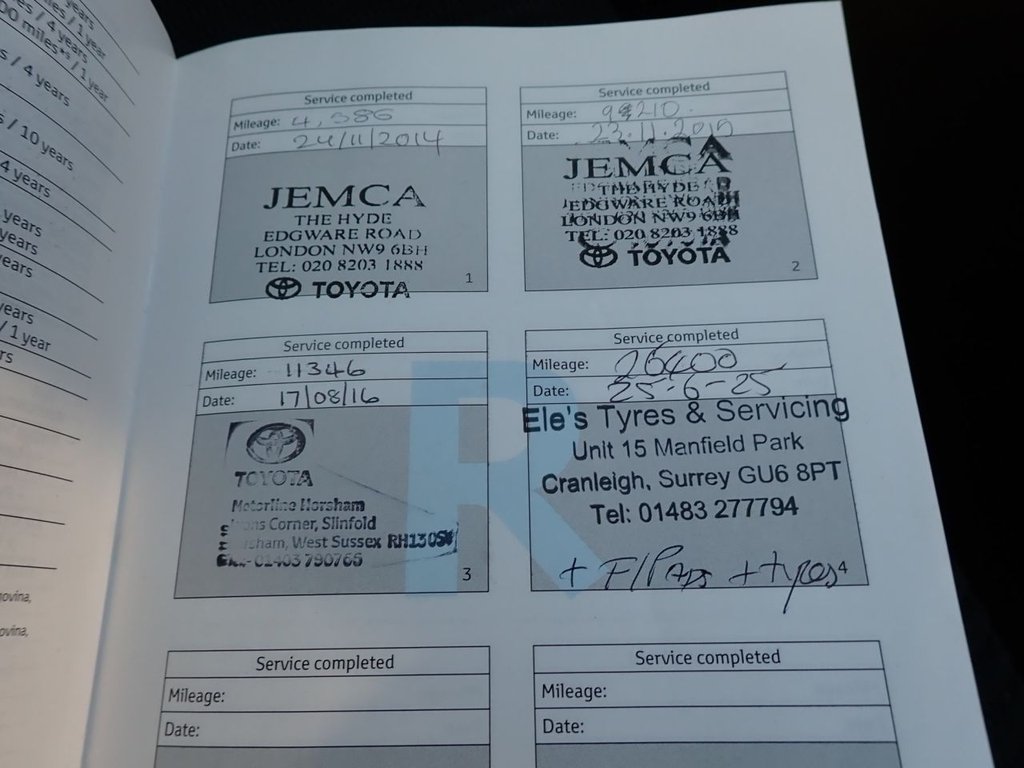 years
es / 1 year
es / 4 years
00 miles*⁵ / 1 year
s / 4 years
s / 10 years
4 years
years
years
years
years
/ 1 year
rs
ovina,
ovina,
Service completed
Mileage: 4,586
Date: 24/11/2014
JEMCA
THE HYDE
EDGWARE ROAD
LONDON NW9 6BH
TEL: 020 8203 1888
TOYOTA
1
Service completed
Mileage:
Date: 23.11.2015
JEMCA
THE HYDE
EDGWARE ROAD
LONDON NW9 6BH
TEL: 020 8203 1888
TOYOTA
2
Service completed
Mileage: 11346
Date: 17/08/16
TOYOTA
Motorline Horsham
Corner, Slinfold
West Sussex RH13
01403 790766
3
Service completed
Mileage: 26400
Date: 25-6-25
Ele's Tyres & Servicing
Unit 15 Manfield Park
Cranleigh, Surrey GU6 8PT
Tel: 01483 277794
+ F/PADS + tyres
4
R
Service completed
Mileage:
Date:
Service completed
Mileage:
Date: